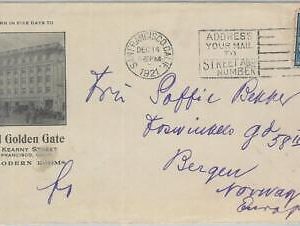 RN IN FIVE DAYS TO
l Golden Gate
KEARNY STREET
FRANCISCO, CAL.
MODERN ROOMS
SAN FRANCISCO, CALIF.
DEC 14
PM
1921
ADDRESS
YOUR MAIL
TO
STREET AND
NUMBER
Frü Soffie Bekker
Foswinkels gd 58
Bergen
Norway
Europa